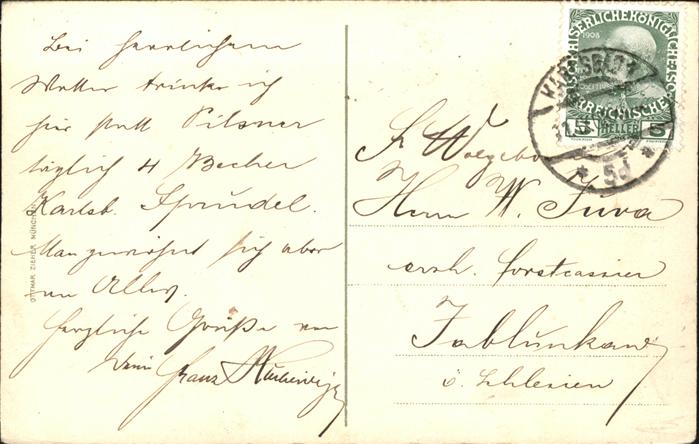 Bei herrlichem
Wetter trinke ich
hier statt Pilsner
täglich 4 Becher
Karlsb. Sprudel.
Man gewöhnt sich aber
an Alles.
Herzliche Grüße von
Franz
OTTMAR ZIEHER, MÜNCHEN
KAISERLICHEKÖNIGLICHE
1908
ÖSTERREICHISCHE
5 HELLER 5
KARLSBAD 1
* 5d *
Sr Wolgeboren
Herrn W. Juva
erzh. Forstcassier
Jablunkau
ö. Schlesien